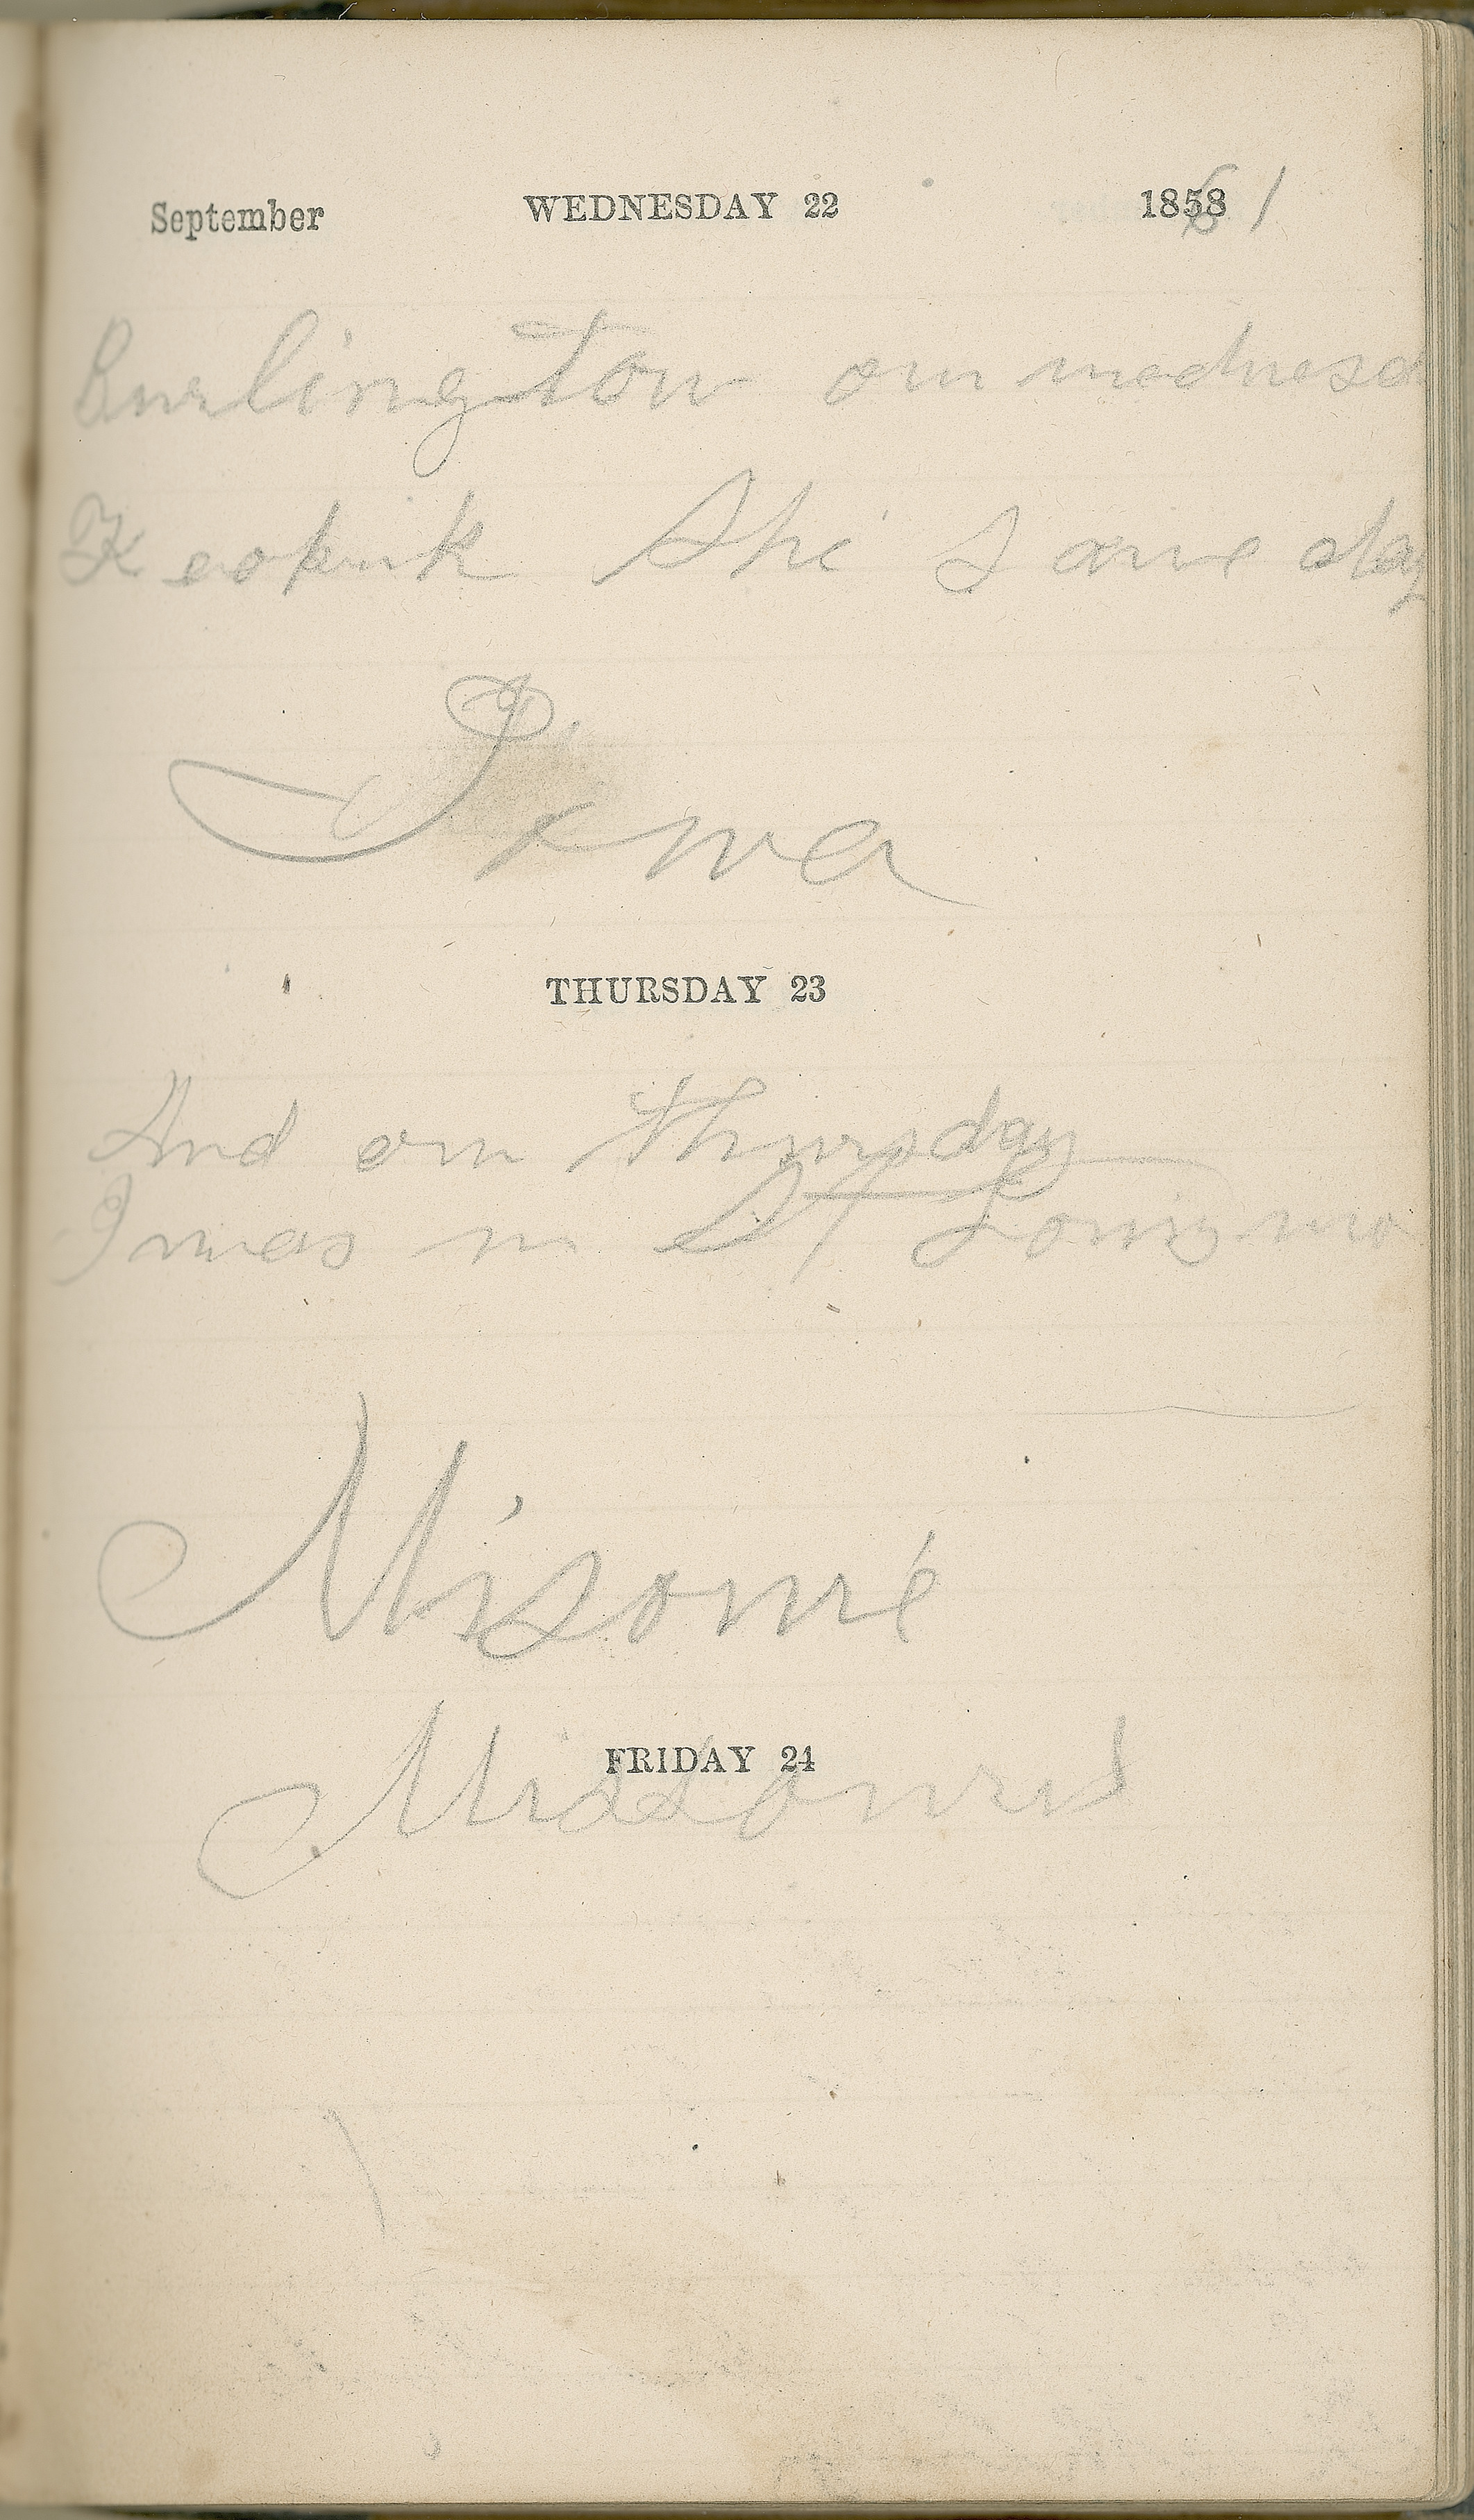 September WEDNESDAY 22 1858 61
Burlington on wednesd
Keokuk the Same day
Iowa
THURSDAY 23
And on thursday
I was in St Louis mo
Misouri
FRIDAY 24
Missouri